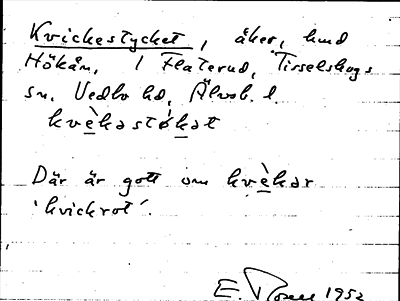 Kvickestycket, åker, hmd
Hökån, 1 Flaterud, Tisselskogs
sn, Vedbo hd, Älvsb. l.
kvè̱kastó̱kat
Där är gott om kvè̱kar
'kvickrot'.
E. Rosell 1952